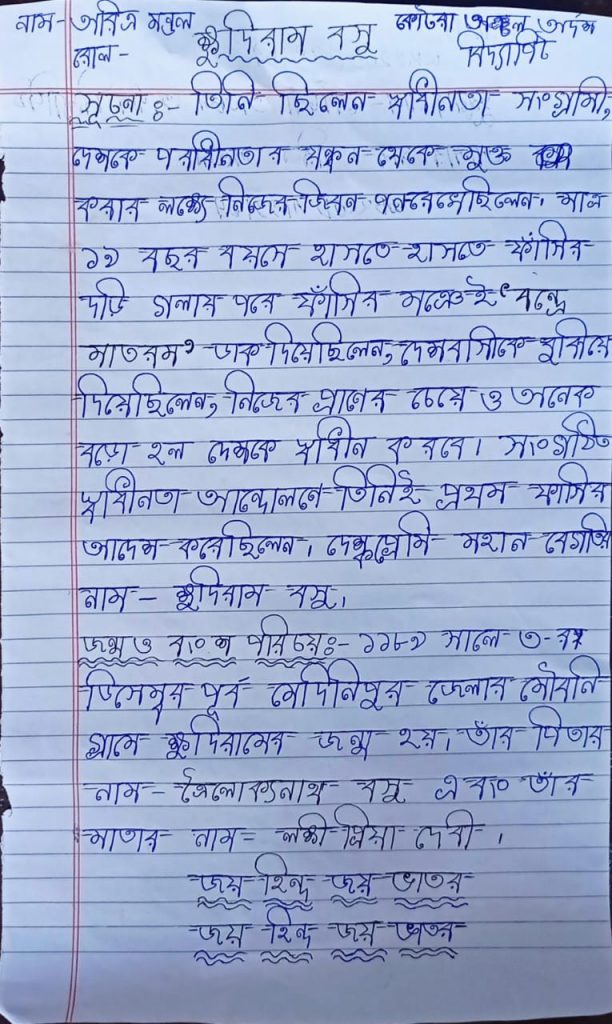 নাম- অরিত্র মন্ডল ক্ষুদিরাম বসু কোটরা অঞ্চল আদর্শ
রোল- বিদ্যাপিট
সূচনাঃ- তিনি ছিলেন স্বাধীনতা সংগ্রামী,
দেশকে পরাধীনতার বন্ধন থেকে মুক্ত
করার লক্ষ্যে নিজের জিবন পনরেখেছিলেন। মাত্র
১৯ বছর বয়সে হাসতে হাসতে ফাঁসির
দড়ি গলায় পরে ফাঁসির মঞ্চেই "বন্দে
মাতরম" ডাক দিয়েছিলেন, দেশবাসিকে বুঝিয়ে
দিয়েছিলেন, নিজের প্রানের চেয়ে ও অনেক
বড়ো হল দেশকে স্বাধীন করবে। সংগঠিত
স্বাধীনতা আন্দোলনে তিনিই প্রথম ফাসির
আদেশ করেছিলেন। দেশপ্রেমি মহান
নাম- ক্ষুদিরাম বসু।
জন্ম ও বংশ পরিচয়ঃ- ১১৮৯ সালে ৩-রা
ডিসেম্বর পূর্ব মেদিনিপুর জেলার মৌবনি
গ্রামে ক্ষুদিরামের জন্ম হয়। তাঁর পিতার
নাম- ত্রৈলোক্যনাথ বসু এবং তাঁর
মাতার নাম= লক্ষী প্রিয়া দেবী।
জয় হিন্দ জয় ভাতর
জয় হিন্দ জয় ভাতর